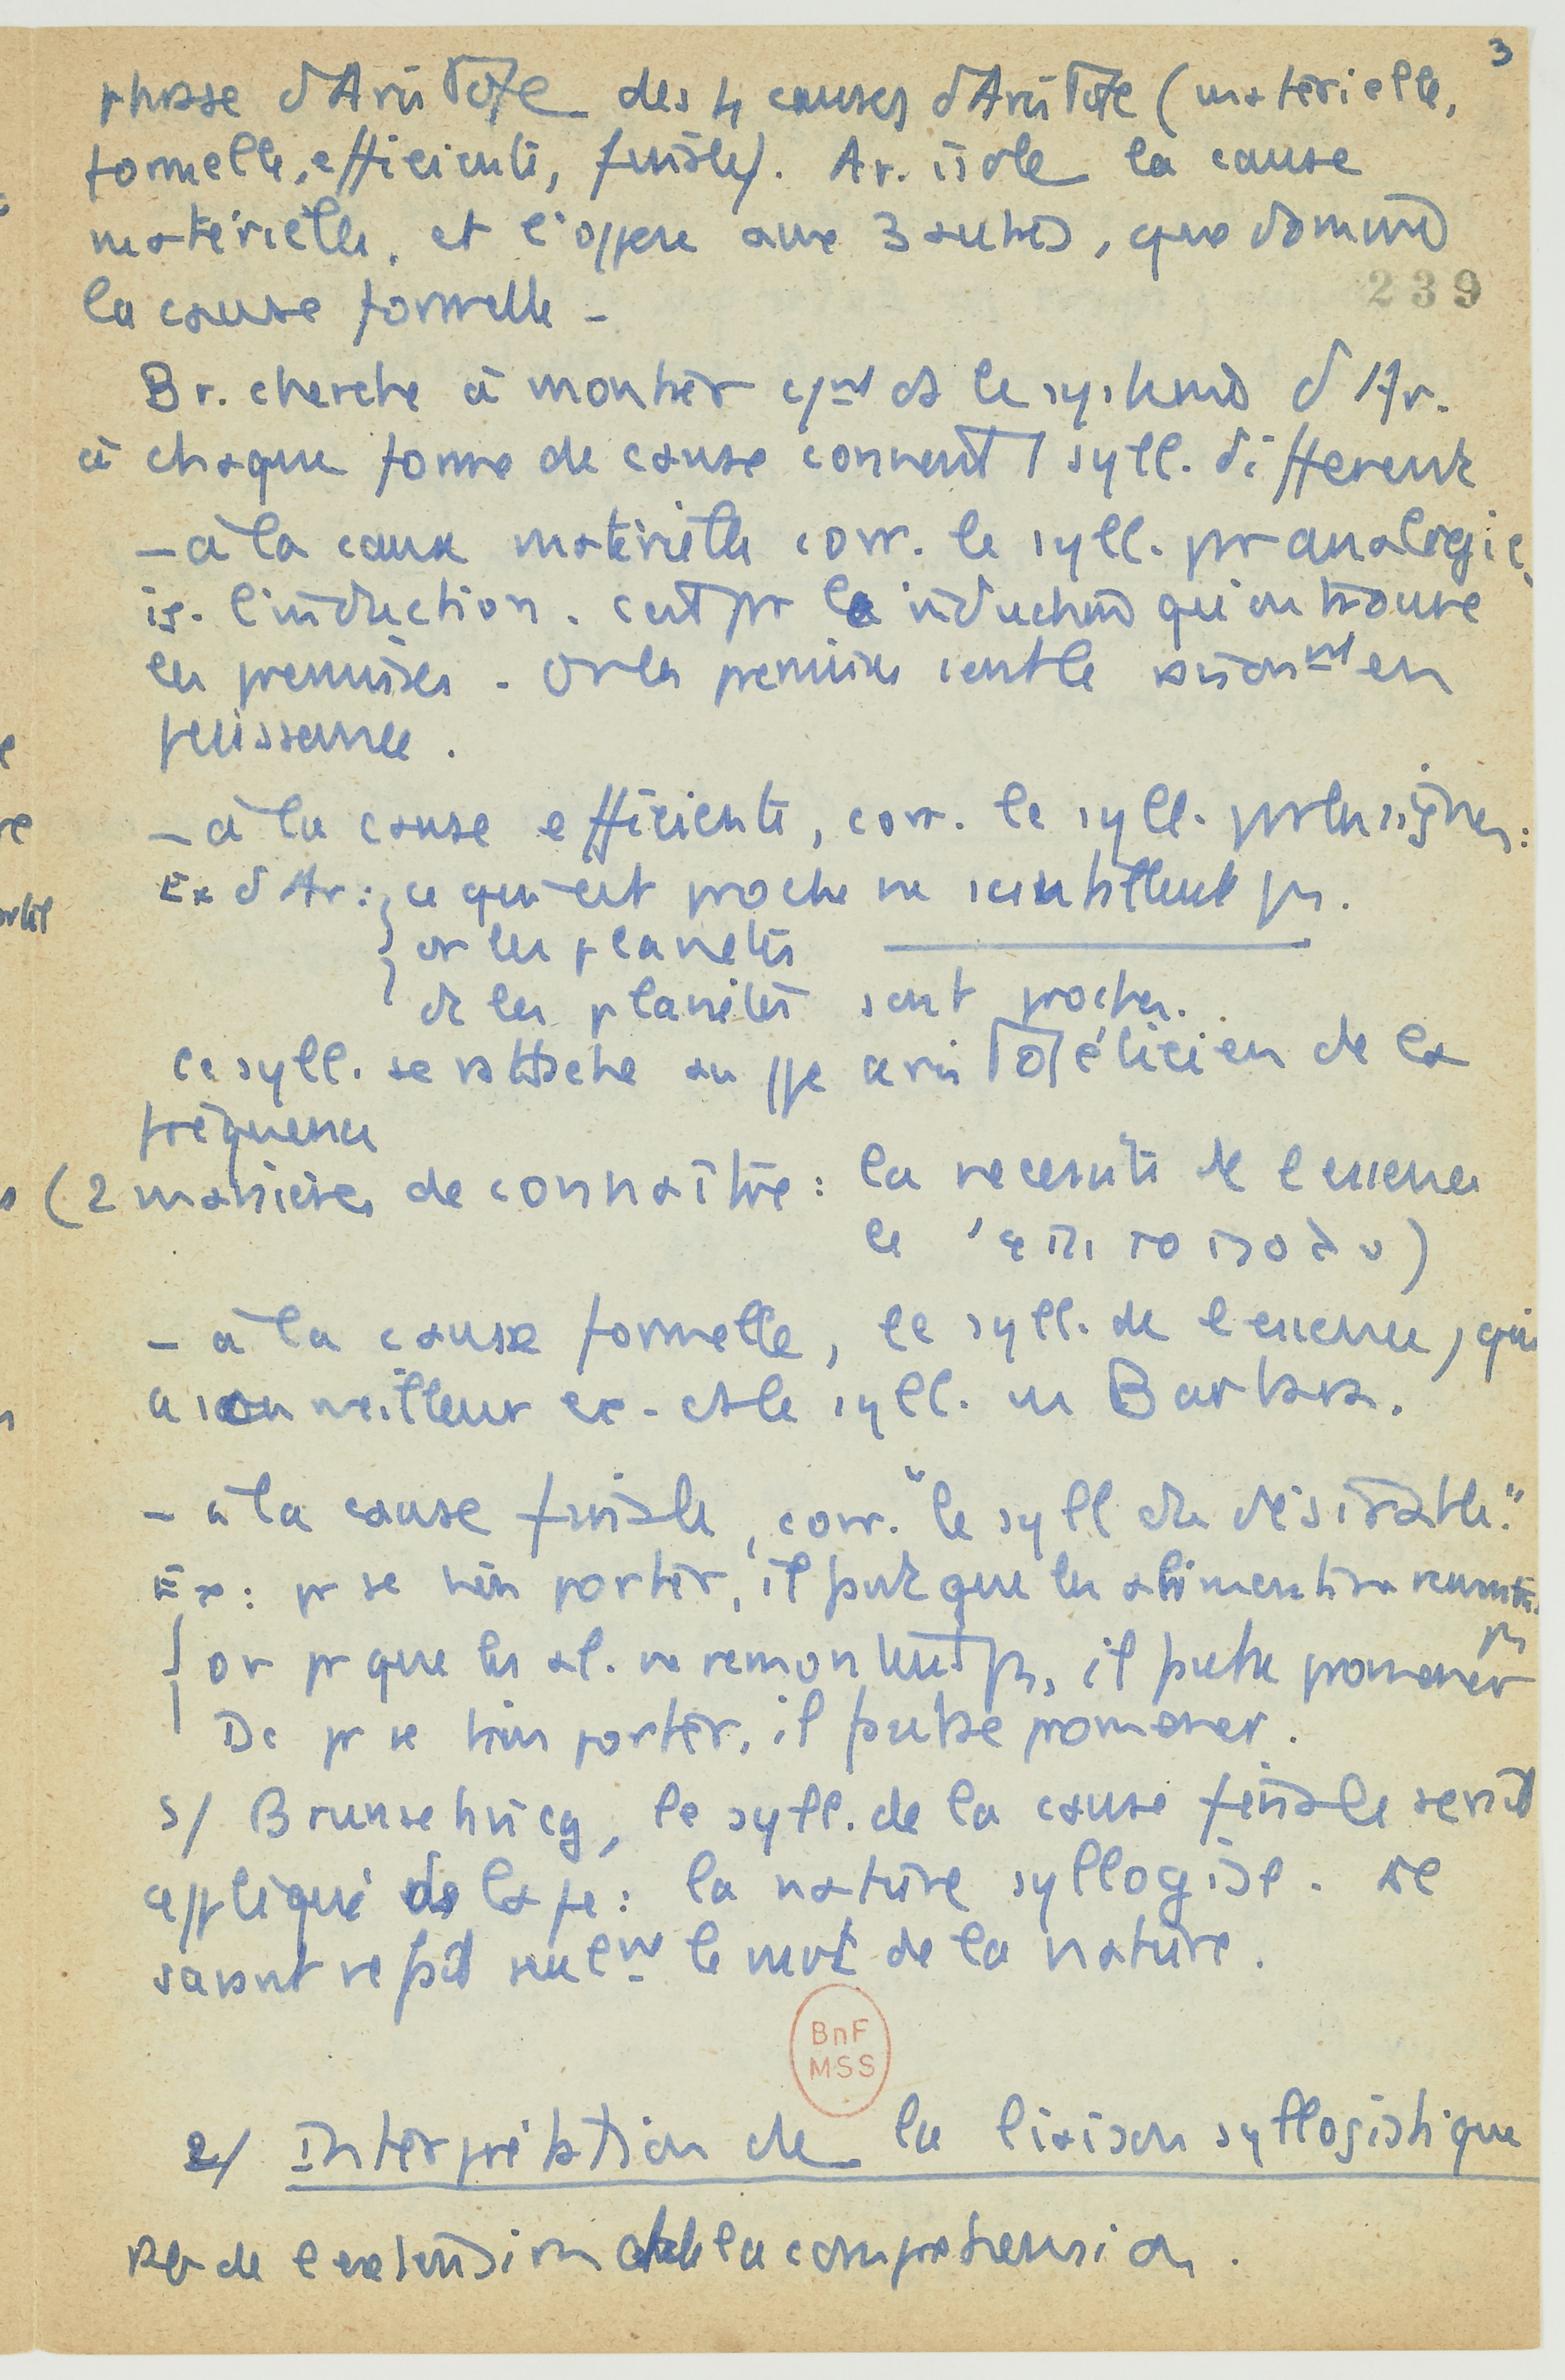 3
phrase d'Aristote des 4 causes d'Aristote (matérielle,
formelle, efficiente, finale). Ar. isole la cause
matérielle, et l'oppose aux 3 autres, que domine
la cause formelle -
239
Br. cherche à montrer cmt ds le système d'Ar.
à chaque forme de cause convient 1 syll. différent
- à la cause matérielle corr. le syll. par analogie,
ie. l'induction. c'est par l'induction qu'on trouve
les prémisses. Or les prémisses sont le raisonnmt en
puissance.
- à la cause efficiente, corr. le syll. par les signes :
Ex d'Ar : ce qui est proche ne scintillent pas.
or les planètes
dc les planètes sont proches.
Ce syll. se rattache au ppe aristotélicien de la
fréquence
(2 manières de connaître : la nécessité de l'essence
le )
- à la cause formelle, le syll. de l'essence, qui
a son meilleur ex. ds le syll. en Barbara.
- à la cause finale, corr. "le syll du désirable."
Ex : pr se bien porter, il faut que les aliments ne remontent
pas
or pr que les al. ne remontent pas, il faut se promener
Dc pr se bien porter, il faut se promener.
s/ Brunschvicg, le syll. de la cause finale serait
appliqué ds la : la nature syllogise. Le
savant ne fait seulmt le mot de la nature.
BnF
MSS
2/ Interprétation de la liaison syllogistique
de l'extension de la compréhension.